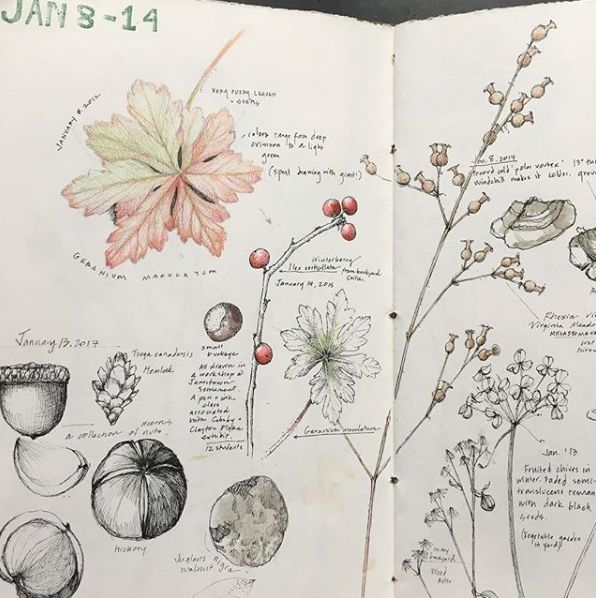 JAN 8-14
JANUARY 8, 2012
VERY FUZZY LEAVES
+ STEMS
colors range from deep
crimson to a light
green
(spent drawing with giant!)
GERANIUM MACULATUM
Winterberry
Ilex verticillata from backyard
January 14, 2016
January 13, 2017
Tsuga canadensis
Hemlock
small
buckeye
All drawn in
a workshop @
Jamestown
Settlement.
A pen + ink
class
associated
with Catesby-
Clayton
exhibit.
12 students
acorns
a collection of nuts
hickory
Juglans nigra
walnut
Geranium maculatum
Jan. 8, 2014
record cold "polar vortex" 13°
Windchill makes it colder.
Rhexia
Virginia Meadow
Jan. '13
Fruited chives in
winter. Faded semi-
translucent
with dark black
seeds.
(Vegetable garden
in yard)
in my
backyard
Wood
Aster